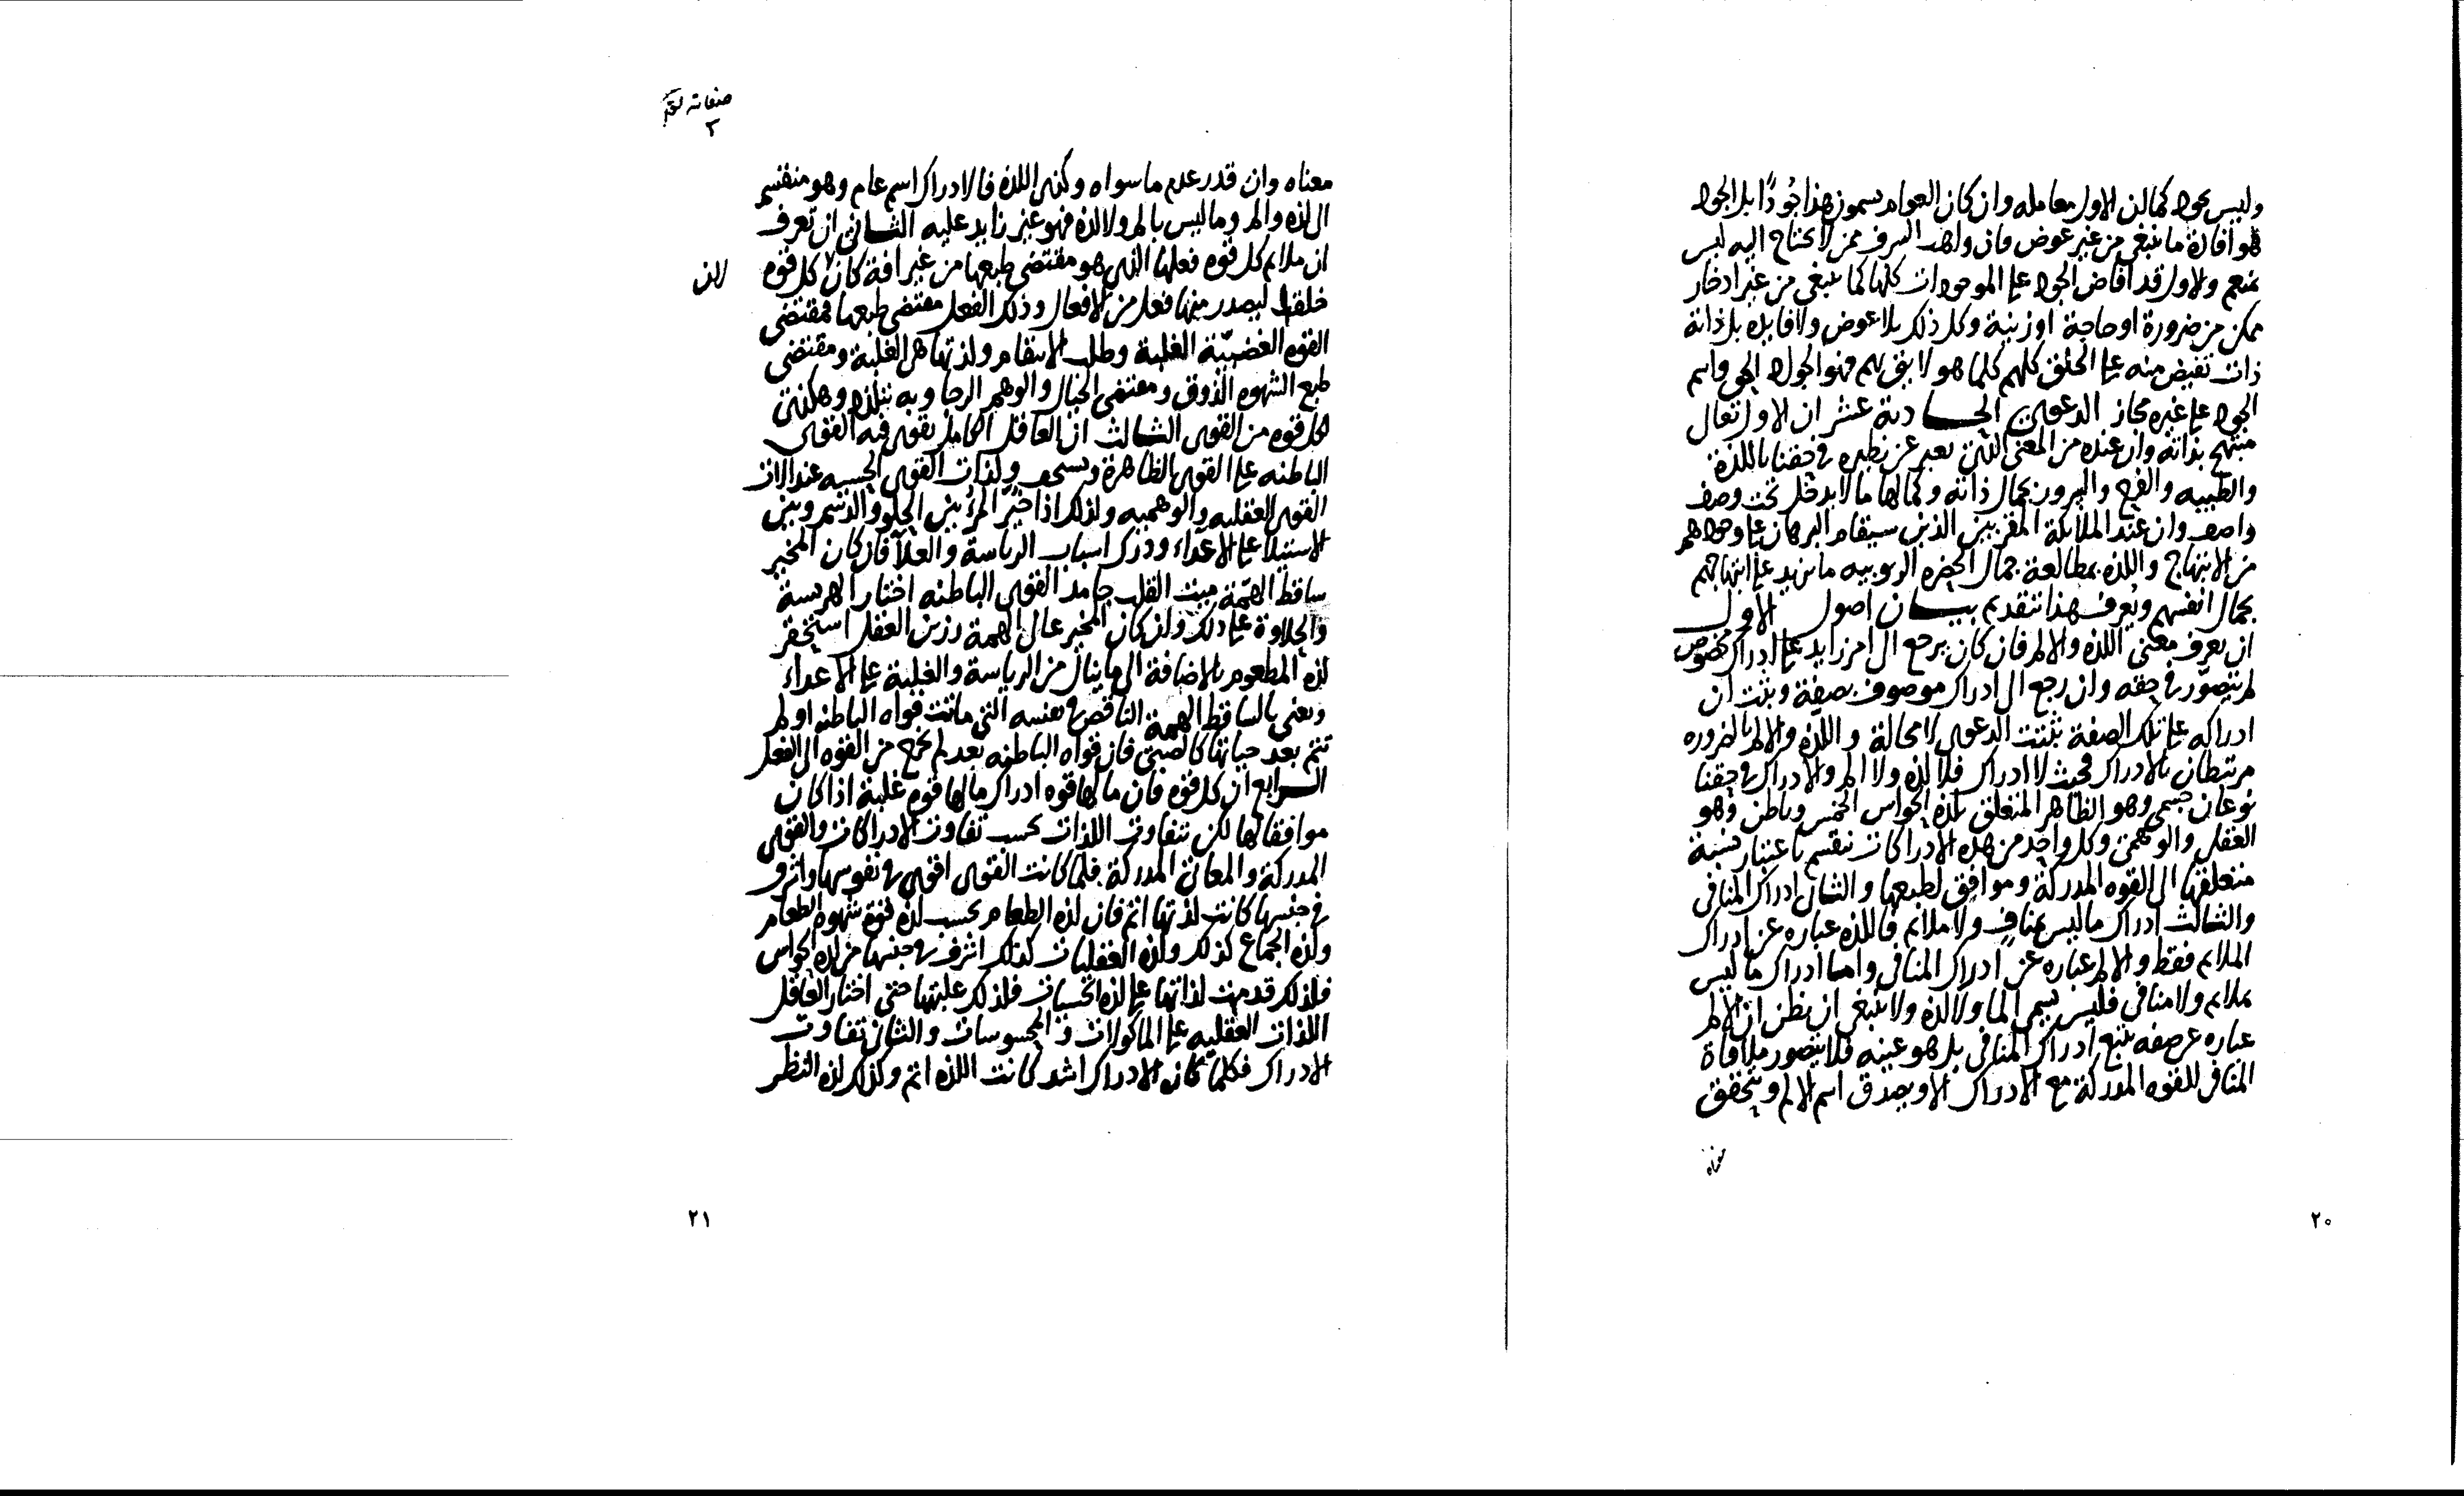 وليس بجواد كما ان الاول معامله وان كان العوام يسمون هذا جُودًا بل الجواد
هو افادة ما ينبغي من غير عوض فان واهب السرف ممن لا يحتاج اليه ليس
بمنعم والاول قد افاض الجود على الموجودات كلها كما ينبغي من غير ادخار
ممكن من ضرورة او حاجة او زينة وكل ذلك بلا عوض ولا فايده بل ذاته
ذات تفيض منه على الخلق كلهم كلما هو لايق بهم فهو الجواد الحق واسم
الجواد على غيره مجاز الدعوى الحــادية عشر ان الاول تعالى
مبتهج بذاته وان عنده من المعنى الذى يعبر عن نظيره في حقنا باللذة
والطيبه والفرح والسرور بجمال ذاته وكمالها ما لا يدخل تحت وصف
واصف وان عند الملائكة المقربين الذين سيقام البرهان على وجودهم
من الابتهاج واللذه بمطالعة جمال الحضره الربوبيه ما يزيد على ابتهاجهم
بجمال انفسهم ويُعرف هذا بتقديم بيــان اصول الاول
ان يعرف معنى اللذه والالم فان كان يرجع الى امر زايد على ادراك مخصوص
لم يتصوّر في حقه وان رجع الى ادراك موصوف بصفة وثبت ان
ادراكه على تلك الصفة ثبتت الدعوى لا محالة واللذه والالم بالضروره
مرتبطان بالادراك فحيث لا ادراك فلا لذه ولا الم والادراك في حقنا
نوعان حسى وهو الظاهر المتعلق بلذه الحواس الخمس وباطن وهو
العقلى والوهمى وكل واحد من هذه الادراكات تنقسم باعتبار نسبة
متعلقها الى القوه المدركة وموافق لطبعها والثانى ادراك المنافى
والثالث ادراك ما ليس بمنافٍ ولا ملايم فاللذه عباره عن ادراك
الملايم فقط والالم عباره عن ادراك المنافى واما ادراك ما ليس
بملايم ولا منافى فليس يسمى الما ولا لذه ولا ينبغى ان يظن ان الالم
عباره عن صفه تتبع ادراك المنافى بل هو عينه فلا يتصور ملاقاة
المنافى للقوه المدركة مع الادراك الا ويصدق اسم الالم ويتحقق
معناه
٢٠
معناه وان قدر عدم ما سواه وكذى اللذه فالادراك اسم عام وهو منقسم
الى لذه والم وما ليس بالم ولا لذه فهو غير زايد عليه الثــانى ان تعرف
ان ملايم كل قوه فعلها الذى هو مقتضى طبعها من غير افة كان لان كل قوه
خلقت ليصدر منها فعل من الافعال وذلك الفعل مقتضى طبعها فمقتضى
القوه الغضبيّة الغلبة وطلب الانتقام ولذتها هى الغلبة ومقتضى
طبع الشهوه الذوق ومقتضى الخيال والوهم الرجا وبه تتلذذ وهكذى
لكل قوه من القوى الثــالث ان العاقل الكامل تقوى فيه القوى
الباطنه على القوى الظاهرة وتستحقر لذات القوى الحسيه عند لذات
القوى العقليه والوهميه ولذلك اذا خُيّر المرؤ بين الحلو والدسم وبين
الاستيلا على الاعداء ودرك اسباب الرياسة والعلا فان كان المخير
ساقط الهمّة ميت القلب جامد القوى الباطنه اختار الهريسة
والحلاوة على ذلك وان كان المخير عالى الهمة رزين العقل استحقر
لذه المطعوم بالاضافة الى ما ينال من الرياسة والغلبة على الاعداء
ونعنى بالساقط الهمة الناقص في نفسه الذى ماتت قواه الباطنه او لم
تتم بعد حياتها كالصبى فان قواه الباطنه بعد لم تخرج من القوه الى الفعل
الــرابع ان كل قوه فان ما لها قوه ادراك ما لها قوه عليه اذا كان
موافقا لها لكن تتفاوت اللذات بحسب تفاوت الادراكات والقوى
المدركة والمعانى المدركة فلما كانت القوى اقوى في نفوسها واشرف
في جنسها كانت لذتها اتم فان لذه الطعام بحسب لذه قوه شهوه الطعام
ولذه الجماع كذلك ولذه العقليات كذلك اشرف في جنسها من لذه الحواس
فلذلك قدمت لذاتها على لذه الحسيات فلذلك غلبتها حتى اختار العاقل
اللذات العقليه على الماكولات والمحسوسات والثانى تفاوت
الادراك فكلما كان الادراك اشد كانت اللذه اتم وكذلك لذه النظر
٢١